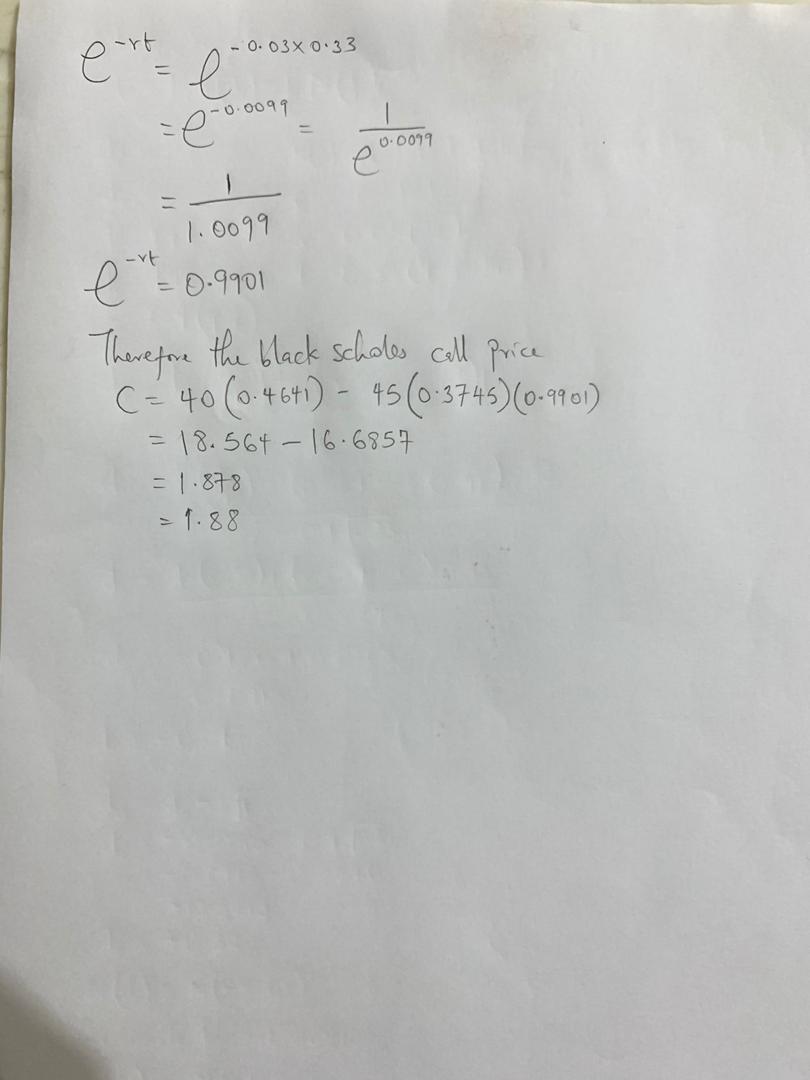 e^-rt = e^-0.03×0.33
= e^-0.0099 = 1/e^0.0099
= 1/1.0099
e^-rt = 0.9901
Therefore the black scholes call price
C = 40(0.4641) - 45(0.3745)(0.9901)
= 18.564 - 16.6857
= 1.878
= 1.88